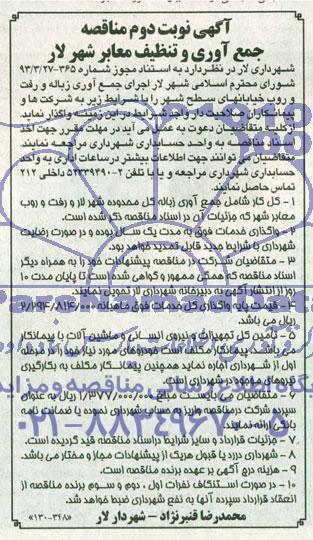 آگهی نوبت دوم مناقصه
جمع آوری و تنظیف معابر شهر لار
شهرداری لار در نظر دارد به استناد مجوز شماره ۳۶۵-۹۳/۳/۲۷
شورای محترم اسلامی شهر لار اجرای جمع آوری زباله و رفت
و روب خیابانهای سطح شهر را با شرایط زیر به شرکت ها و
پیمانکاران صلاحیت دار واجد شرایط در این زمینه واگذار نماید.
از کلیه متقاضیان دعوت به عمل می آید در مهلت مقرر جهت اخذ
اسناد مناقصه به واحد حسابداری شهرداری مراجعه نمایند
متقاضیان می توانند جهت اطلاعات بیشتر در ساعات اداری به واحد
حسابداری شهرداری مراجعه و یا با تلفن ۲-۵۲۳۳۹۴۹۰ داخلی ۲۱۲
تماس حاصل نمایند.
۱ - کل کار شامل جمع آوری زباله کل محدوده شهر لار و رفت و روب
معابر شهر که جزئیات آن در اسناد مناقصه ذکر شده است.
۲ - واگذاری خدمات فوق به مدت یک سال بوده و در صورت رضایت
شهرداری با شرایط جدید قابل تمدید خواهد بود.
۳ - متقاضیان شرکت در مناقصه پیشنهادات خود را به همراه دیگر
اسناد مناقصه که همگی ممهور و گواهی شده است تا پایان مدت ۱۰
روز از انتشار آگهی به دبیرخانه شهرداری لار تحویل نمایند.
۴ - قیمت پایه واگذاری کل خدمات فوق ماهیانه ۲/۲۹۴/۸۱۴/۰۰۰
ریال می باشد.
۵ - تأمین کل تجهیزات و نیروی انسانی و ماشین آلات با پیمانکار
می باشد. پیمانکار مکلف است خودروهای مورد نیاز خود را در مرحله
اول از شهرداری اجاره نماید همچنین پیمانکار مکلف به بکارگیری
نیروهای موجود در شهرداری است.
۶ - متقاضیان می بایست مبلغ ۱/۳۷۷/۰۰۰/۰۰۰ ریال به عنوان
سپرده شرکت در مناقصه واریز به حساب شهرداری نموده یا ضمانت نامه
بانکی ارائه نمایند.
۷ - جزئیات قرارداد و سایر شرایط در اسناد مناقصه قید گردیده است.
۸ - شهرداری در رد یا قبول هریک از پیشنهادات مجاز و مختار می باشد.
۹ - هزینه درج آگهی بر عهده برنده مناقصه است.
۱۰ - در صورت استنکاف نفرات اول ، دوم و سوم برنده مناقصه از
انعقاد قرارداد سپرده آنها به نفع شهرداری ضبط خواهد شد.
محمدرضا قنبرنژاد – شهردار لار
«۱۳۰-۳۴۸»
۰۲۱-۸۸۳۴۹۶۷۰